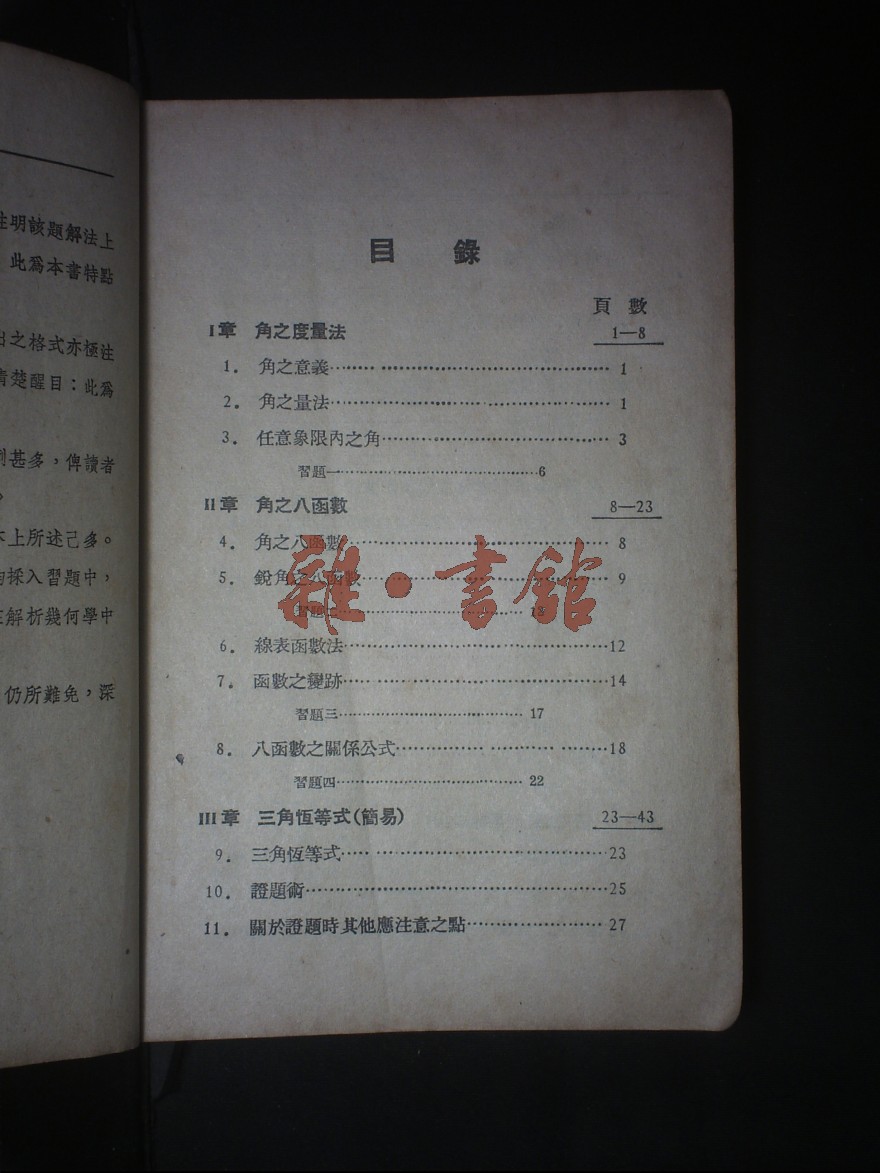 主明該題解法上
此爲本書特點
出之格式亦極注
清楚醒目：此爲
列甚多，俾讀者
本上所述己多。
均採入習題中，
在解析幾何學中
仍所難免，深
目 錄
頁 數
I章 角之度量法 1—8
1. 角之意義 1
2. 角之量法 1
3. 任意象限內之角 3
習題一 6
II章 角之八函數 8—23
4. 角之八函數 8
5. 銳角之八函數 9
習題二
6. 線表函數法 12
7. 函數之變跡 14
習題三 17
8. 八函數之關係公式 18
習題四 22
III章 三角恆等式(簡易) 23—43
9. 三角恆等式 23
10. 證題術 25
11. 關於證題時其他應注意之點 27
雜·書館